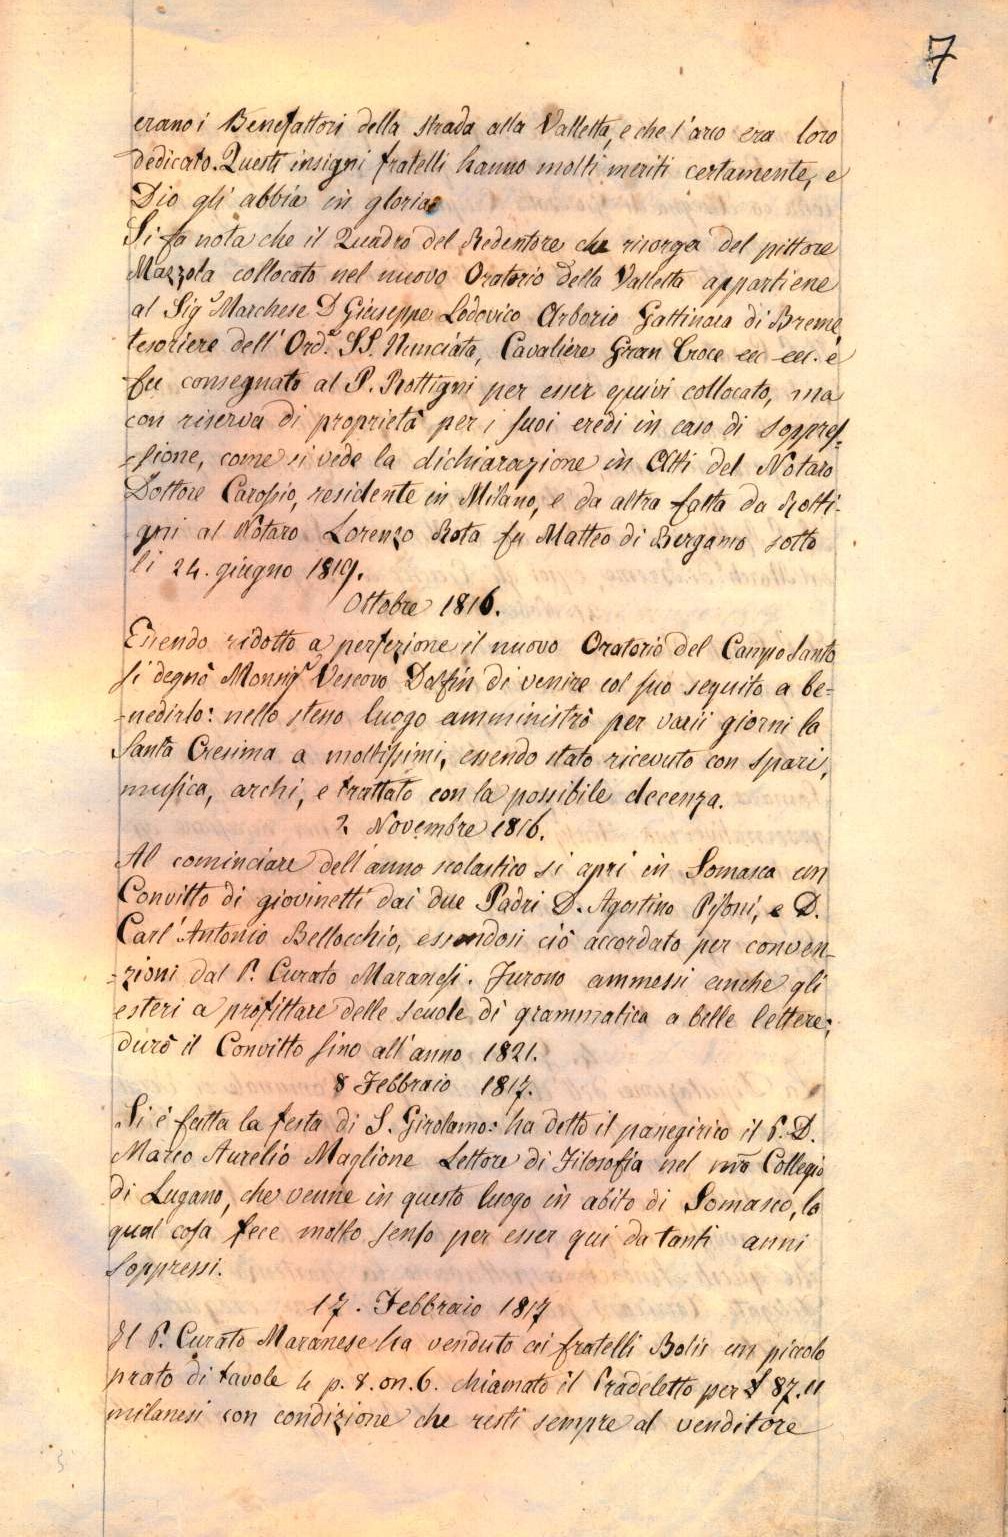 7
erano i Benefattori della strada alla Valletta, e che l'arco era loro
dedicato. Questi insigni fratelli hanno molti meriti certamente, e
Dio gli abbia in gloria.
Si fa nota che il Quadro del Redentore che risorge del pittore
Mazzola collocato nel nuovo Oratorio della Valletta appartiene
al Sigr Marchese D Giuseppe Lodovico Arborio Gattinara di Breme
tesoriere dell'Ord.e SS. Nunciata, Cavaliere Gran Croce ecc ecc. e
fu consegnato al P. Rottigni per esser quivi collocato, ma
con riserva di proprietà per i suoi eredi in caso di soppres=
=sione, come si vede la dichiarazione in Atti del Notaro
Dottore Carossio, residente in Milano, e da altra fatta da Rotti-
gni al Notaro Lorenzo Rota fu Matteo di Bergamo sotto
li 24. giugno 1819.
Ottobre 1816.
Essendo ridotto a perfezione il nuovo Oratorio del Campo Santo
si degnò Monsigr Vescovo Dolfin di venire col suo seguito a be=
=nedirlo: nello stesso luogo amministrò per varii giorni la
Santa Cresima a moltissimi, essendo stato ricevuto con spari,
musica, archi, e trattato con la possibile decenza.
2 Novembre 1816.
Al cominciare dell'anno scolastico si aprì in Somasca un
Convitto di giovinetti dai due Padri D. Agostino Pisoni, e D.
Carl'Antonio Bellocchio, essendosi ciò accordato per conven=
=zioni dal P. Curato Maranesi. Furono ammessi anche gli
esteri a profittare delle scuole di grammatica a belle lettere;
durò il Convitto sino all'anno 1821.
8 Febbraio 1817.
Si è fatta la festa di S. Girolamo: ha detto il panegirico il P. D.
Marco Aurelio Maglione Lettore di Filosofia nel nr̃o Collegio
di Lugano, che venne in questo luogo in abito di Somasco, la
qual cosa fece molto senso per esser qui da tanti anni
soppressi.
17. Febbraio 1817
Il P. Curato Maranese ha venduto ai fratelli Bolis un piccolo
prato di tavole 4 p. 8. on. 6. chiamato il Pradeletto per £ 87.11
milanesi con condizione che resti sempre al venditore